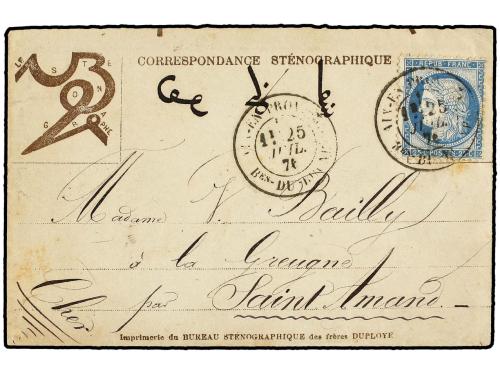 LE STÉNOGRAPHE
CORRESPONDANCE STÉNOGRAPHIQUE
REPUB FRANC
AIX-EN-PROV
25
JUIL.
74
BES-DU-RH
Madame V. Bailly
à la Greugne
par Saint Amand
Cher
Imprimerie du BUREAU STÉNOGRAPHIQUE des frères DUPLOYÉ